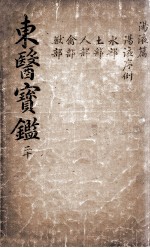 湯液篇
湯液序例
水部
土部
人部
禽部
獸部
東醫寶鑑 二十